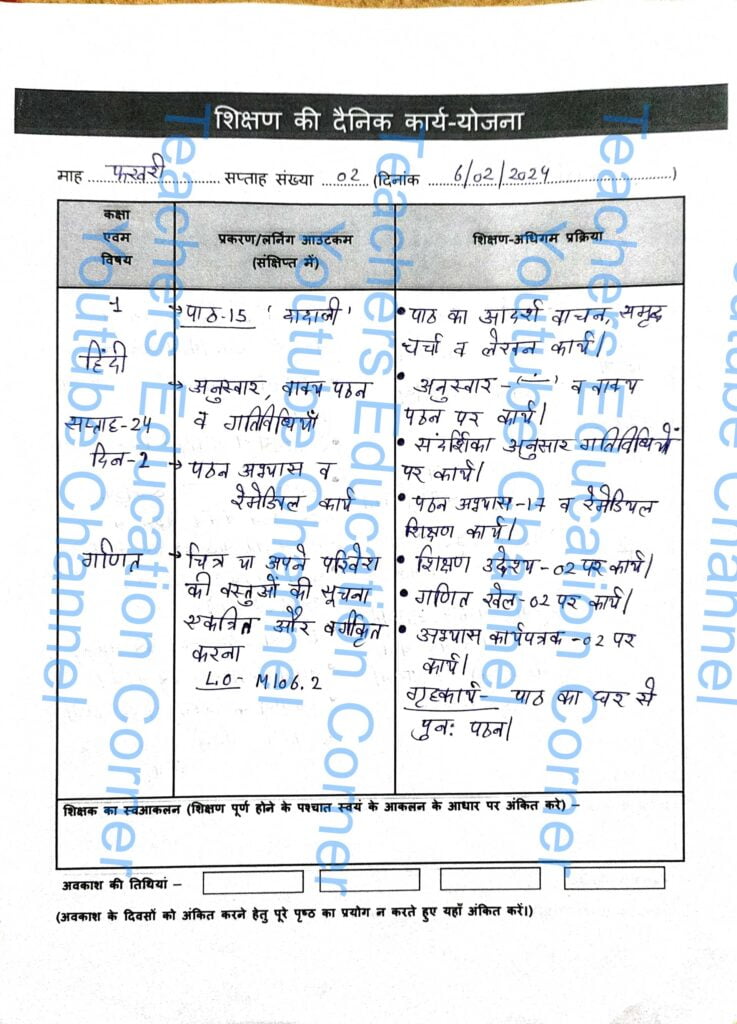 शिक्षण की दैनिक कार्य-योजना
माह फरवरी सप्ताह संख्या 02 (दिनांक 6/02/2024)
कक्षा
एवम
विषय
प्रकरण/लर्निंग आउटकम
(संक्षिप्त में)
शिक्षण-अधिगम प्रक्रिया
1
हिंदी
सप्ताह-24
दिन-2
गणित
→ पाठ-15
→ अनुस्वार, वाक्य पठन
व गतिविधियाँ
→ पठन अभ्यास व
रेमेडियल कार्य
→ चित्र या अपने परिवेश
की वस्तुओं की सूचना
एकत्रित और वर्गीकृत
करना
L.O- M106.2
• पाठ का आदर्श वाचन, समृद्ध
चर्चा व लेखन कार्य।
• अनुस्वार -(ं) व वाक्य
पठन पर कार्य।
• संदर्शिका अनुसार गतिविधियों
पर कार्य।
• पठन अभ्यास-17 व रेमेडियल
शिक्षण कार्य।
• शिक्षण उद्देश्य-02 पर कार्य।
• गणित खेल-02 पर कार्य।
• अभ्यास कार्यपत्रक-02 पर
कार्य।
गृहकार्य- पाठ का घर से
पुनः पठन।
शिक्षक का स्वआकलन (शिक्षण पूर्ण होने के पश्चात स्वयं के आकलन के आधार पर अंकित करे) –
अवकाश की तिथियां –
(अवकाश के दिवसों को अंकित करने हेतु पूरे पृष्ठ का प्रयोग न करते हुए यहाँ अंकित करें।)
Teachers Education Corner
Youtube Channel
Teachers Education Corner
Youtube Channel
Teachers Education Corner
Youtube Channel